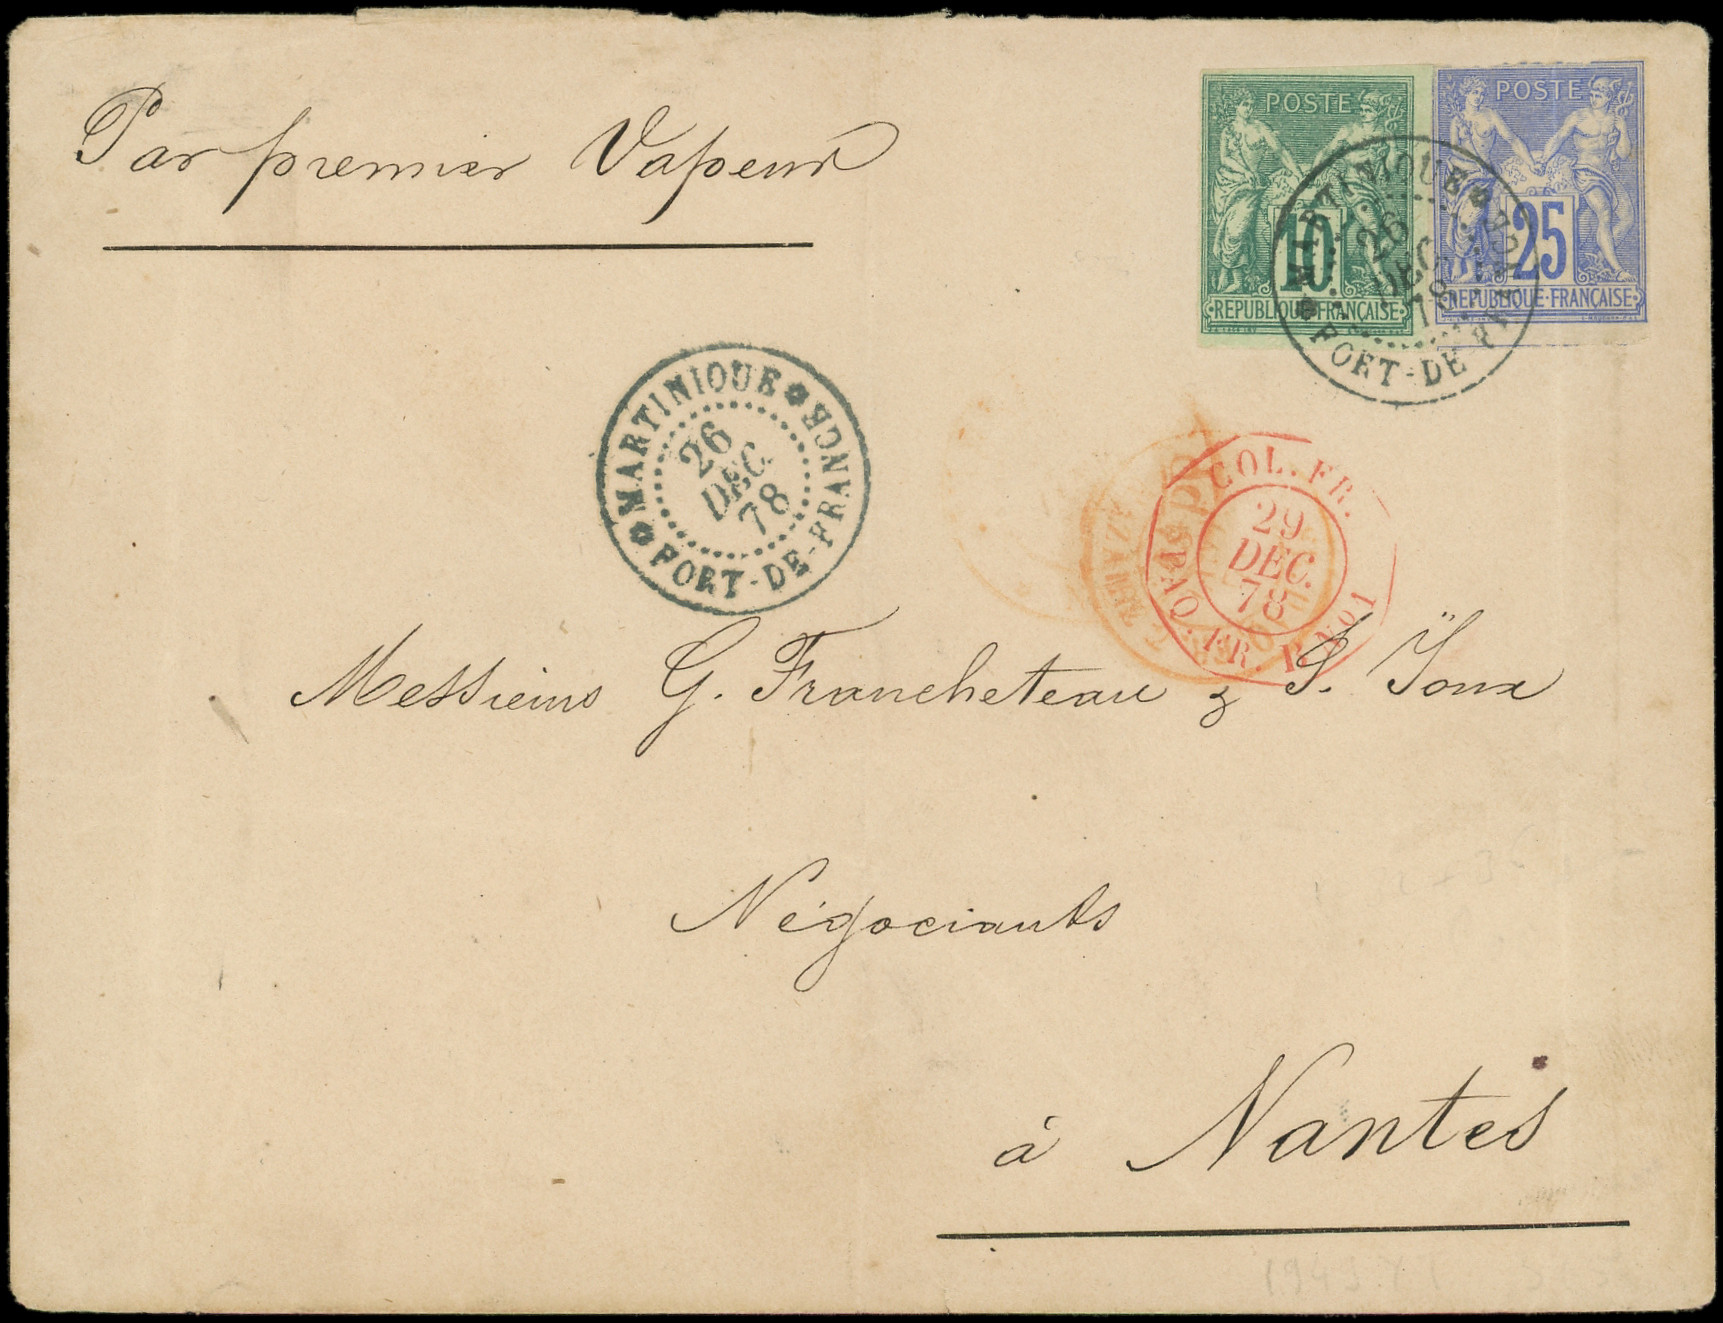 Par premier Vapeur
POSTE
10
REPUBLIQUE·FRANÇAISE
POSTE
25
REPUBLIQUE·FRANÇAISE
MARTINIQUE
26
DEC.
78
FORT-DE-FRANCE
MARTINIQUE
26
DEC.
78
FORT-DE-FRANCE
COL. FR.
29
DEC.
78
PAQ. FR. B No1
Messieurs G. Francheteau & S. Ioux
Négociants
à Nantes